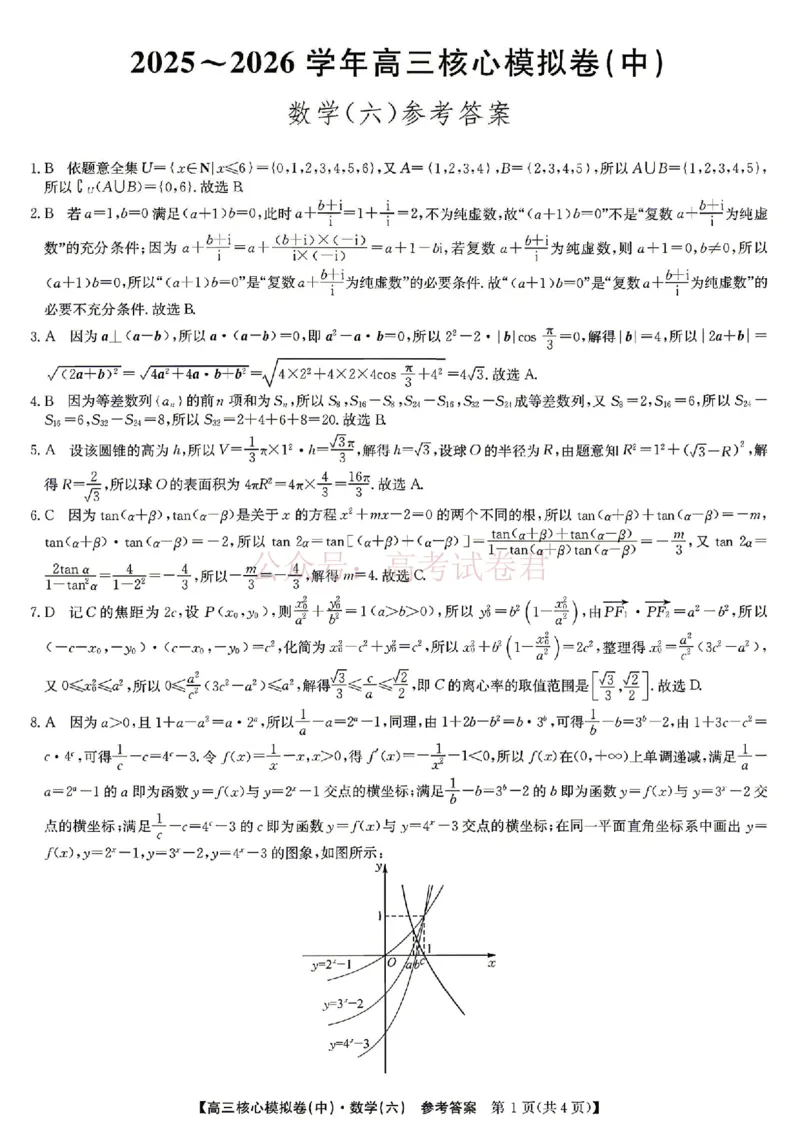 2025～2026 学年高三核心模拟卷(中)
数学(六)参考答案
1. B 依题意全集U={x∈N|x≤6}={0,1,2,3,4,5,6},又A={1,2,3,4},B={2,3,4,5},所以A∪B={1,2,3,4,5},
所以∁U(A∪B)={0,6}.故选B.
2. B 若a=1,b=0满足(a+1)b=0,此时a+(b+i)/i=1+i/i=2,不为纯虚数,故“(a+1)b=0”不是“复数a+(b+i)/i为纯虚
数”的充分条件;因为a+(b+i)/i=a+((b+i)×(-i))/(i×(-i))=a+1-bi,若复数a+(b+i)/i为纯虚数,则a+1=0,b≠0,所以
(a+1)b=0,所以“(a+1)b=0”是“复数a+(b+i)/i为纯虚数”的必要条件.故“(a+1)b=0”是“复数a+(b+i)/i为纯虚数”的
必要不充分条件.故选B.
3. A 因为a⊥(a-b),所以a·(a-b)=0,即a²-a·b=0,所以2²-2·|b|cos π/3=0,解得|b|=4,所以|2a+b|=
√((2a+b)²)=√(4a²+4a·b+b²)=√(4×2²+4×2×4cos π/3+4²)=4√3.故选A.
4. B 因为等差数列{aₙ}的前n项和为Sₙ,所以S₈,S₁₆-S₈,S₂₄-S₁₆,S₃₂-S₂₄成等差数列,又S₈=2,S₁₆=6,所以S₂₄-
S₁₆=6,S₃₂-S₂₄=8,所以S₃₂=2+4+6+8=20.故选B.
5. A 设该圆锥的高为h,所以V=1/3π×1²·h=√3π/3,解得h=√3,设球O的半径为R,由题意知R²=1²+(√3-R)²,解
得R=2/√3,所以球O的表面积为4πR²=4π×4/3=16π/3.故选A.
6. C 因为tan(α+β),tan(α-β)是关于x的方程x²+mx-2=0的两个不同的根,所以tan(α+β)+tan(α-β)=-m,
tan(α+β)·tan(α-β)=-2,所以tan 2α=tan[(α+β)+(α-β)]=(tan(α+β)+tan(α-β))/(1-tan(α+β)tan(α-β))=-m/3,又tan 2α=
2tan α/(1-tan²α)=4/(1-2²)=-4/3,所以-m/3=-4/3,解得m=4.故选C.
公众号:高考试卷君
7. D 记C的焦距为2c,设P(x₀,y₀),则x₀²/a²+y₀²/b²=1(a>b>0),所以y₀²=b²(1-x₀²/a²),由PF₁·PF₂=a²-b²,所以
(-c-x₀,-y₀)·(c-x₀,-y₀)=c²,化简为x₀²-c²+y₀²=c²,所以x₀²+b²(1-x₀²/a²)=2c²,整理得x₀²=a²/c²(3c²-a²),
又0≤x₀²≤a²,所以0≤a²/c²(3c²-a²)≤a²,解得√3/3≤c/a≤√2/2,即C的离心率的取值范围是[√3/3,√2/2].故选D.
8. A 因为a>0,且1+a-a²=a·2ᵃ,所以1/a-a=2ᵃ-1,同理,由1+2b-b²=b·3ᵇ,可得1/b-b=3ᵇ-2,由1+3c-c²=
c·4ᶜ,可得1/c-c=4ᶜ-3.令f(x)=1/x-x,x>0,得f′(x)=-1/x²-1<0,所以f(x)在(0,+∞)上单调递减,满足1/a-
a=2ᵃ-1的a即为函数y=f(x)与y=2ˣ-1交点的横坐标;满足1/b-b=3ᵇ-2的b即为函数y=f(x)与y=3ˣ-2交
点的横坐标;满足1/c-c=4ᶜ-3的c即为函数y=f(x)与y=4ˣ-3交点的横坐标;在同一平面直角坐标系中画出y=
f(x),y=2ˣ-1,y=3ˣ-2,y=4ˣ-3的图象,如图所示:
y
1
1
y=2ˣ-1 O a b c x
y=3ˣ-2
y=4ˣ-3
【高三核心模拟卷(中)·数学(六) 参考答案 第1页(共4页)】